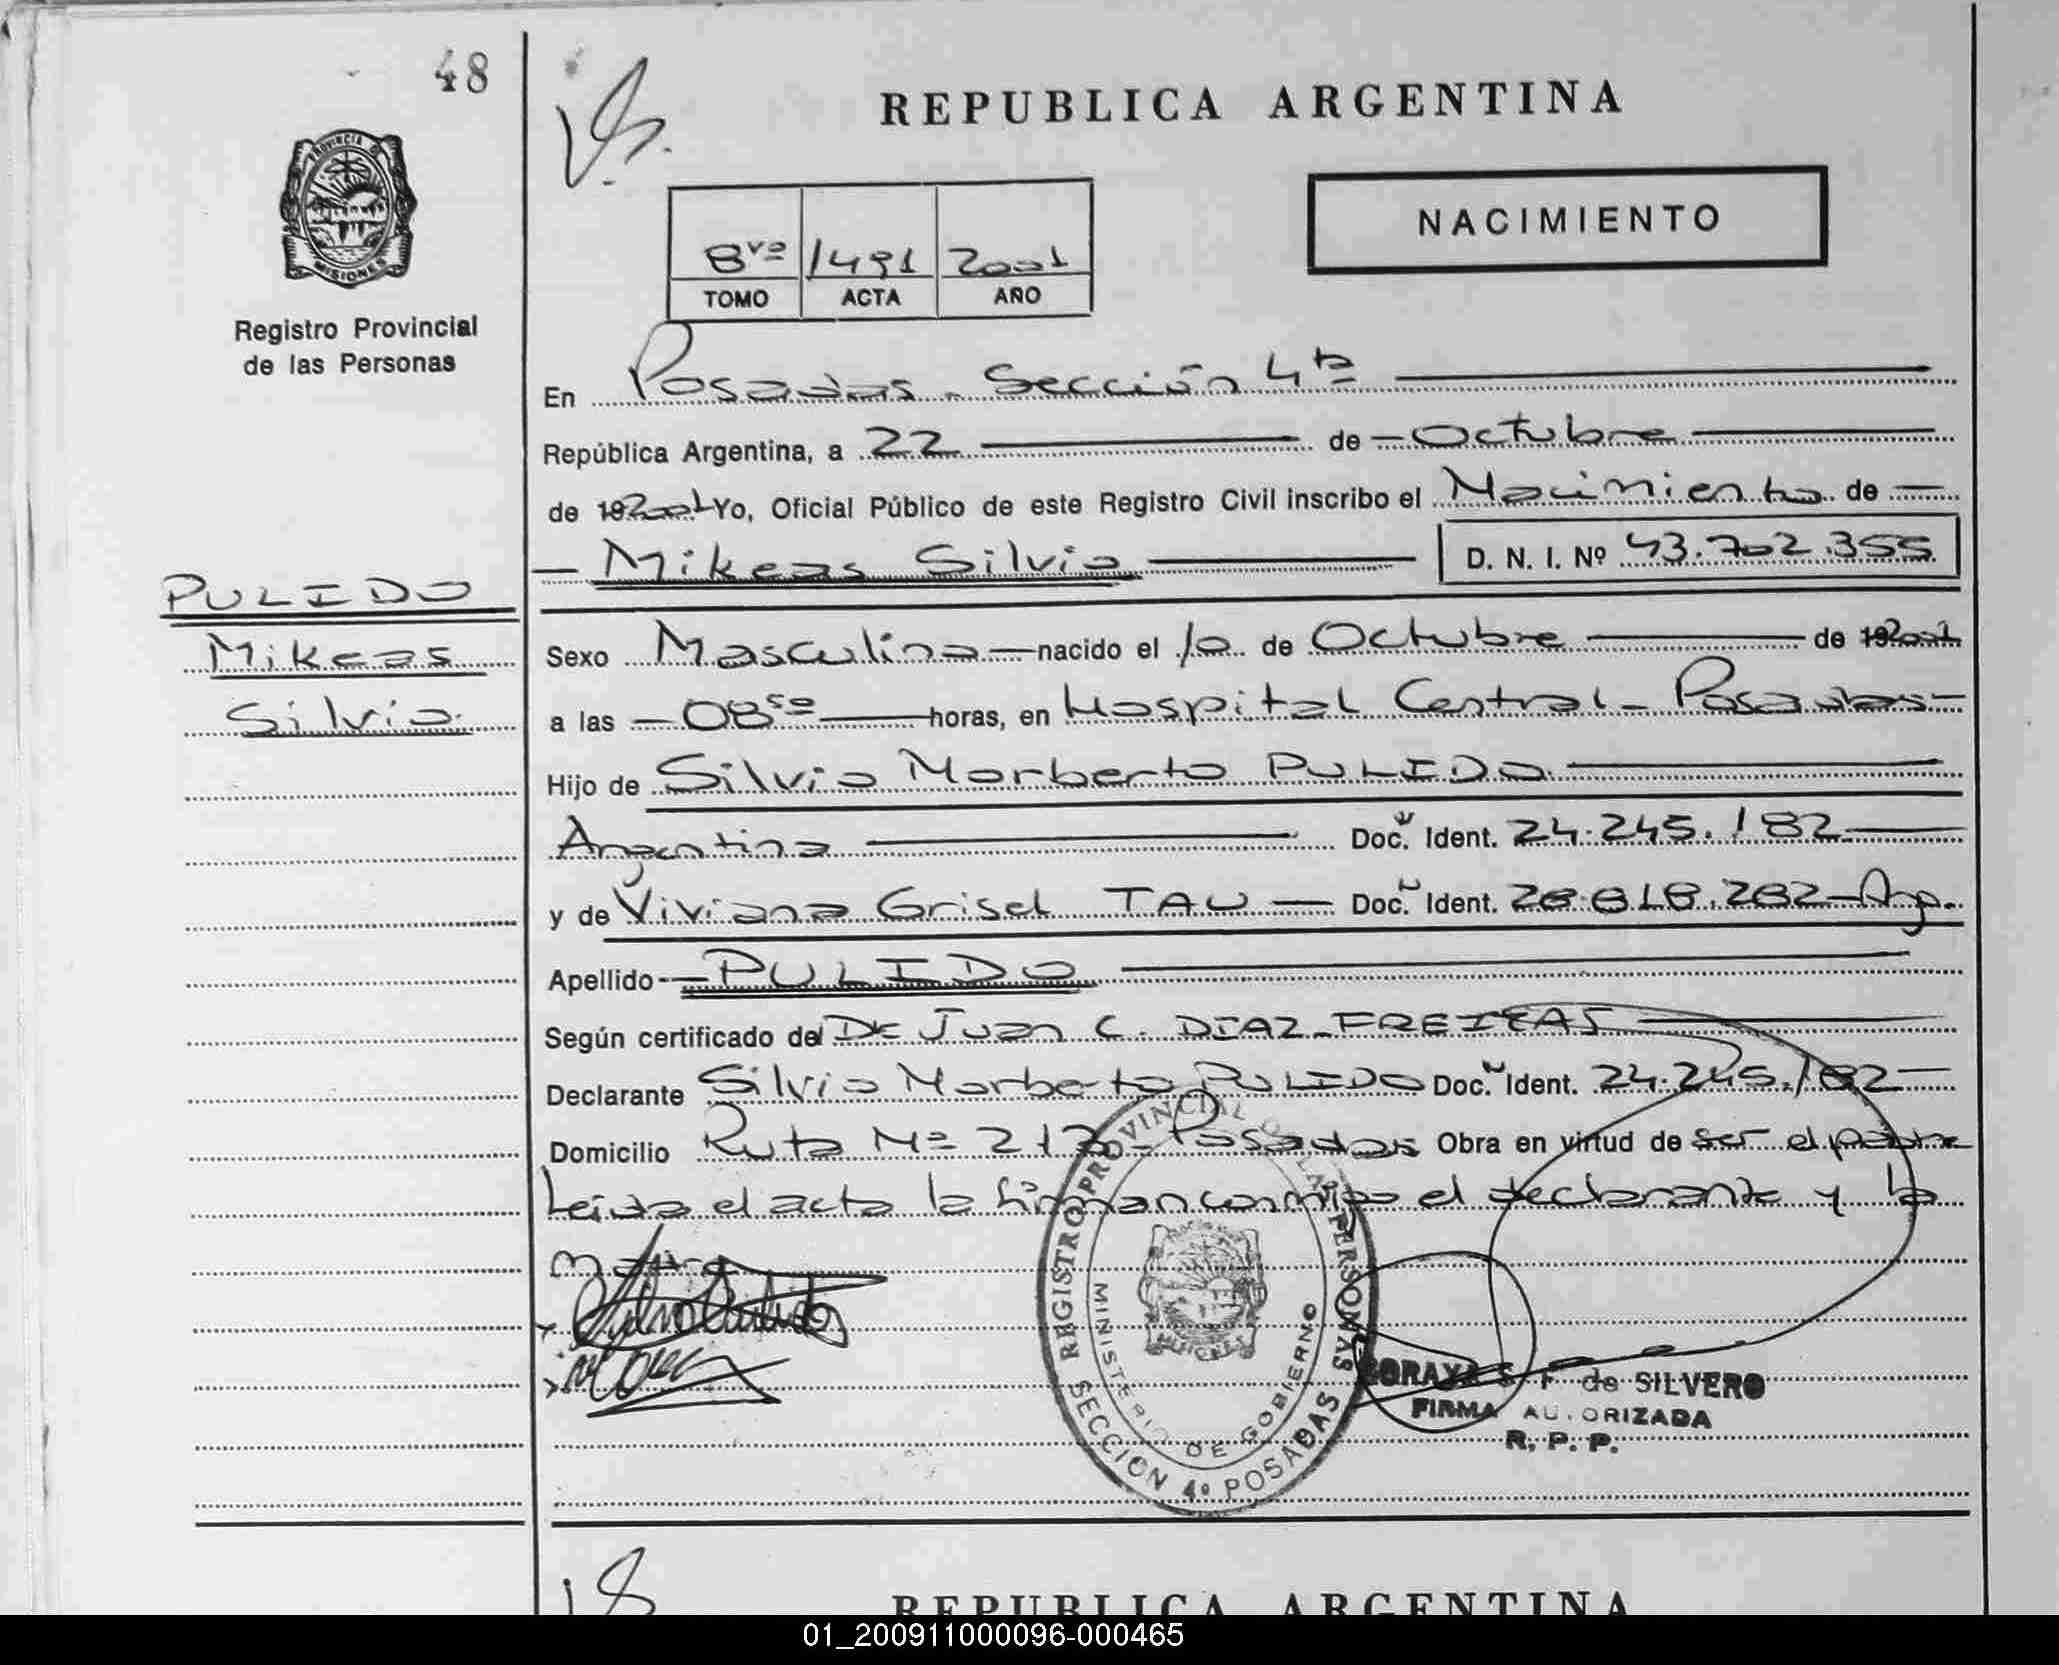 48
REPUBLICA ARGENTINA
PROVINCIA D
MISIONES
Registro Provincial
de las Personas
NACIMIENTO
8vo 1491 2001
TOMO ACTA AÑO
En Posadas - Sección 4ta
República Argentina, a 22 de Octubre
de 192001 Yo, Oficial Público de este Registro Civil inscribo el Nacimiento de
Mikeas Silvio D. N. I. Nº 43.702.355
PULIDO
Mikeas
Silvio
Sexo Masculino nacido el 10 de Octubre de 192001
a las 08 50 horas, en Hospital Central - Posadas
Hijo de Silvio Norberto PULIDO
Argentina Doc. Ident. 24.245.182
y de Viviana Grisel TAU Doc. Ident. 28.818.282 - Arg.
Apellido PULIDO
Según certificado del De Juan C. DIAZ - FREITAS
Declarante Silvio Norberto PULIDO Doc. Ident. 24.245.182
Domicilio Ruta Nº 213 - Posadas Obra en virtud de ser el padre
Leida el acta la firman conmigo el declarante y la
madre
REGISTRO PROVINCIAL DE LAS PERSONAS
MINISTERIO DE GOBIERNO
SECCION 4º POSADAS
SORAYA S. F. de SILVERO
FIRMA AUTORIZADA
R. P. P.
REPUBLICA ARGENTINA
01_200911000096-000465